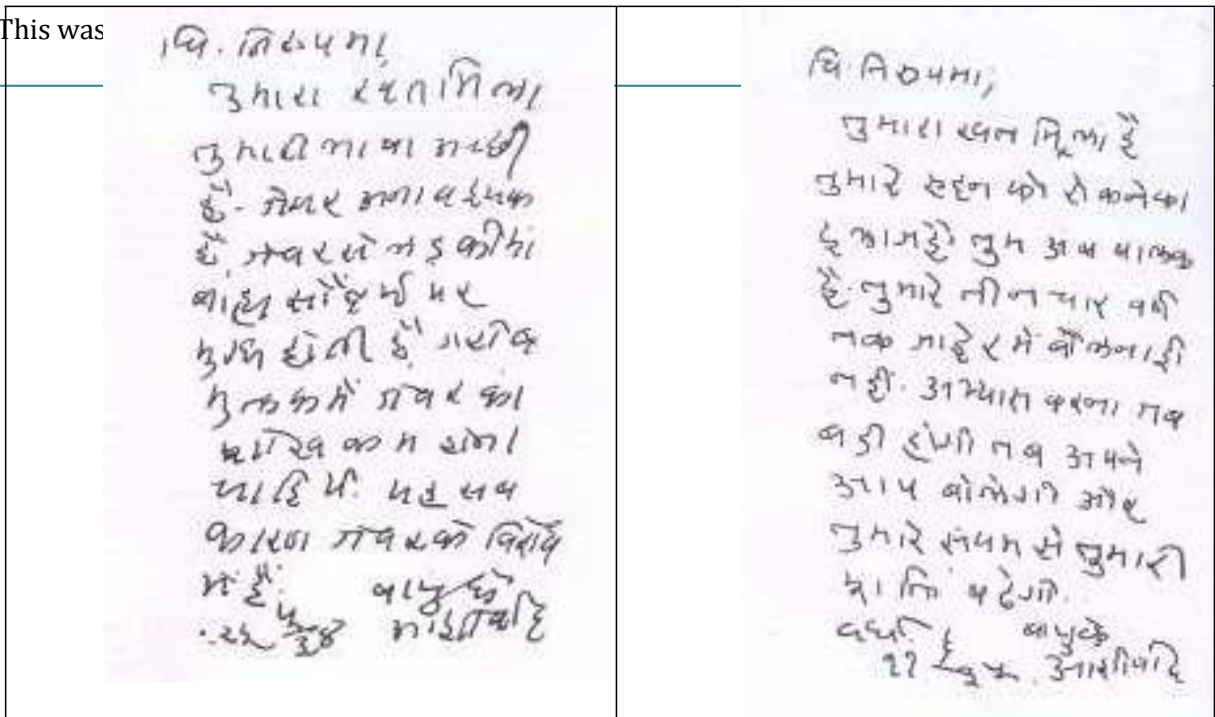 This was
चि. निरुपमा,
तुमारा खत मिला
तुमारी भाषा अच्छी
है. जेवर अनावश्यक
है, जेवरसे लड़कीयां
बाह्य सौंदर्य पर
मुग्ध होती हैं. गरीब
मुलकमें जेवर का
शोख कम होना
चाहिये. यह सब
कारण जेवरके विरोध
में हैं. बापुके
आशीर्वाद
चि. निरुपमा,
तुमारा खत मिला है
तुमारे रुदन को रोकनेका
तुम अब बालक
है. तुमारे तीन चार वर्ष
तक जाहेर में बोलनाही
नहीं. अभ्यास करना जब
बडी होगी तब अपने
आप बोलेगी और
तुमारे संयम से तुमारी
शक्ति बढेगी.
वर्धा बापुके
आशीर्वाद